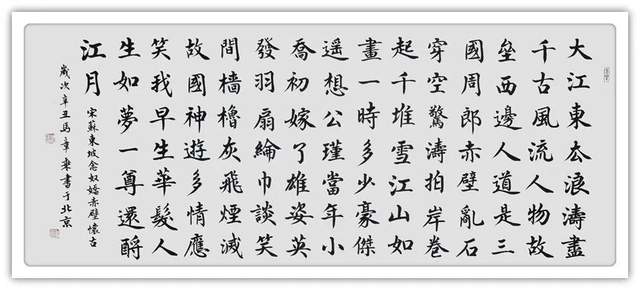 大江東去浪濤盡
千古風流人物故
壘西邊人道是三
國周郎赤壁亂石
穿空驚濤拍岸卷
起千堆雪江山如
畫一時多少豪傑
遙想公瑾當年小
喬初嫁了雄姿英
發羽扇綸巾談笑
間檣櫓灰飛煙滅
故國神遊多情應
笑我早生華髮人
生如夢一尊還酹
江月
宋蘇東坡念奴嬌赤壁懷古
歲次辛丑馬章乘書于北京